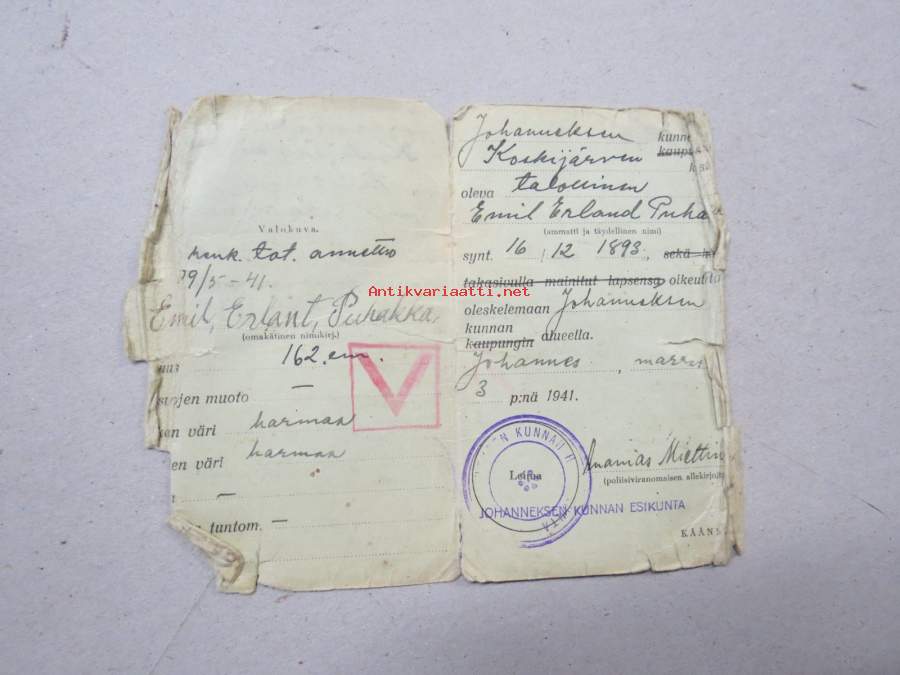 Valokuva.
henk. tot. annettu
29/5-41.
Emil, Erlant, Puhakka,
(omakätinen nimikirj.)
162. cm.
V
vojen muoto —
en väri harmaa
en väri harmaa
—
tuntom. —
Johanneksen kunn
kaup
Koskijärven
oleva talollinen
Emil Erland Puha
(ammatti ja täydellinen nimi)
synt. 16 / 12 1893, sekä
takasivulla mainitut lapsensa oikeut
oleskelemaan Johanneksen
kunnan
kaupungin alueella.
Johannes, marras
3 p:nä 1941.
EN KUNNAN
Leima
Ananias Miettin
(poliisiviranomaisen allekirjoitus
JOHANNEKSEN KUNNAN ESIKUNTA
KÄÄN
Antikvariaatti.net